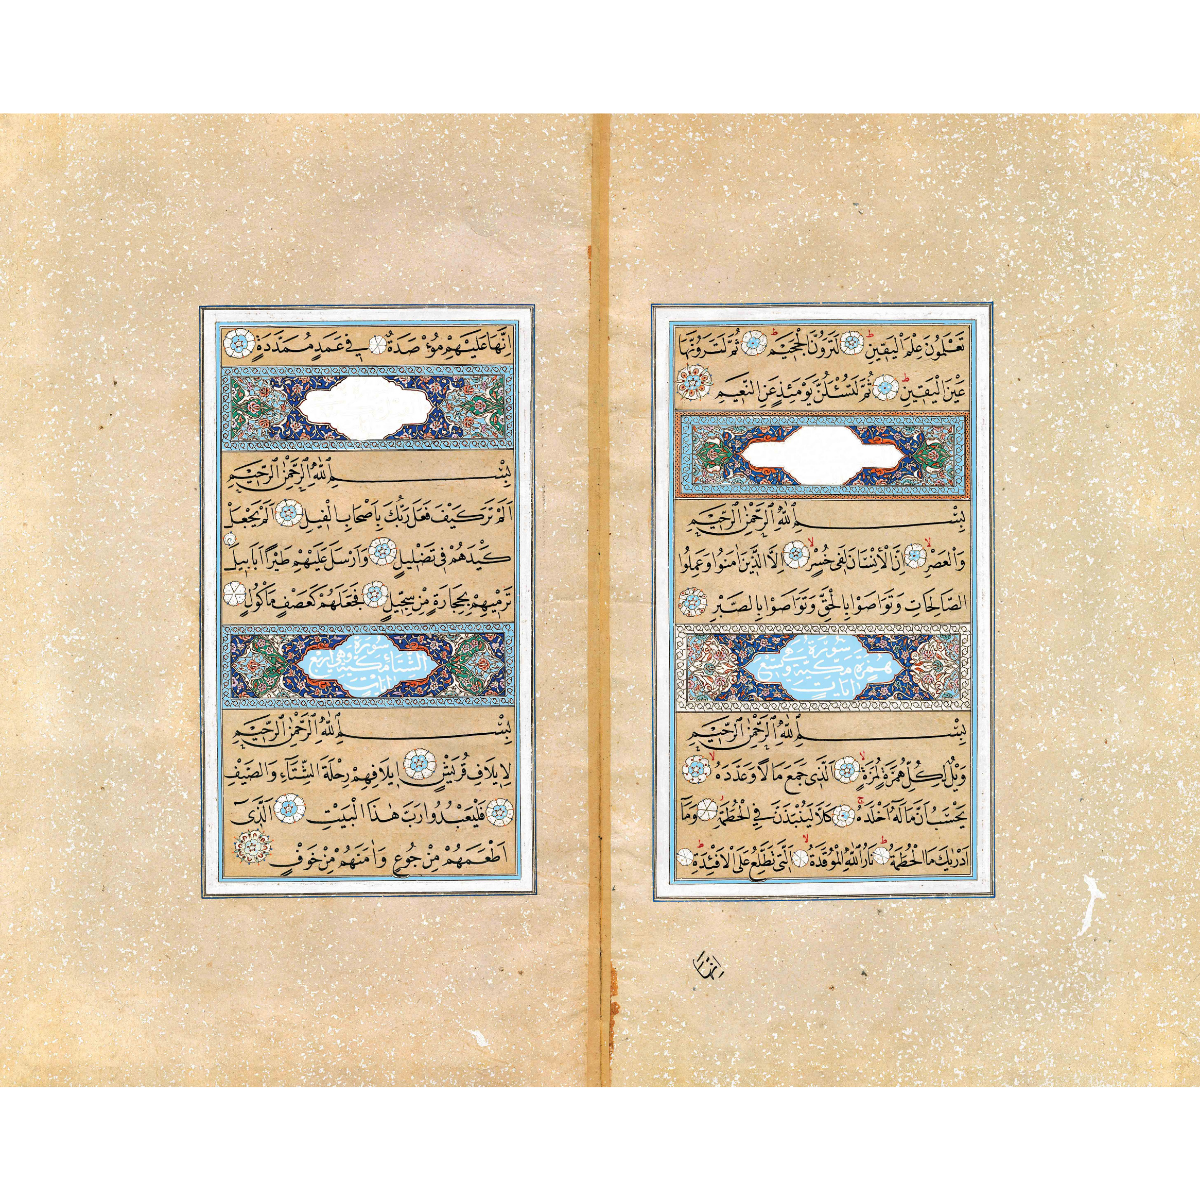 تَعْلَمُونَ عِلْمَ الْيَقِينِ ط لَتَرَوُنَّ الْجَحِيمَ ط ثُمَّ لَتَرَوُنَّهَا
عَيْنَ الْيَقِينِ ط ثُمَّ لَتُسْئَلُنَّ يَوْمَئِذٍ عَنِ النَّعِيمِ
بِسْمِ اللّٰهِ الرَّحْمٰنِ الرَّحِيمِ
وَالْعَصْرِ لا اِنَّ الْاِنْسَانَ لَفِى خُسْرٍ لا اِلَّا الَّذِينَ اٰمَنُوا وَعَمِلُوا
الصَّالِحَاتِ وَتَوَاصَوْا بِالْحَقِّ وَتَوَاصَوْا بِالصَّبْرِ
سورة
همزه مكية وهى تسع
ايات
بِسْمِ اللّٰهِ الرَّحْمٰنِ الرَّحِيمِ
وَيْلٌ لِكُلِّ هُمَزَةٍ لُمَزَةٍ لا اَلَّذِى جَمَعَ مَالًا وَعَدَّدَهُ لا
يَحْسَبُ اَنَّ مَالَهُ اَخْلَدَهُ ج كَلَّا لَيُنْبَذَنَّ فِى الْحُطَمَةِ وَمَا
اَدْرٰيكَ مَا الْحُطَمَةُ ط نَارُ اللّٰهِ الْمُوقَدَةُ لا اَلَّتِى تَطَّلِعُ عَلَى الْاَفْئِدَةِ ط
اِنَّهَا
اِنَّهَا عَلَيْهِمْ مُؤْصَدَةٌ فِى عَمَدٍ مُمَدَّدَةٍ
بِسْمِ اللّٰهِ الرَّحْمٰنِ الرَّحِيمِ
اَلَمْ تَرَ كَيْفَ فَعَلَ رَبُّكَ بِاَصْحَابِ الْفِيلِ اَلَمْ يَجْعَلْ
كَيْدَهُمْ فِى تَضْلِيلٍ وَاَرْسَلَ عَلَيْهِمْ طَيْرًا اَبَابِيلَ
تَرْمِيهِمْ بِحِجَارَةٍ مِنْ سِجِّيلٍ فَجَعَلَهُمْ كَعَصْفٍ مَأْكُولٍ
سورة
الشتاء مكية وهى اربع
ايات
بِسْمِ اللّٰهِ الرَّحْمٰنِ الرَّحِيمِ
لِاِيلَافِ قُرَيْشٍ اِيلَافِهِمْ رِحْلَةَ الشِّتَاءِ وَالصَّيْفِ
فَلْيَعْبُدُوا رَبَّ هٰذَا الْبَيْتِ اَلَّذِى
اَطْعَمَهُمْ مِنْ جُوعٍ وَاٰمَنَهُمْ مِنْ خَوْفٍ